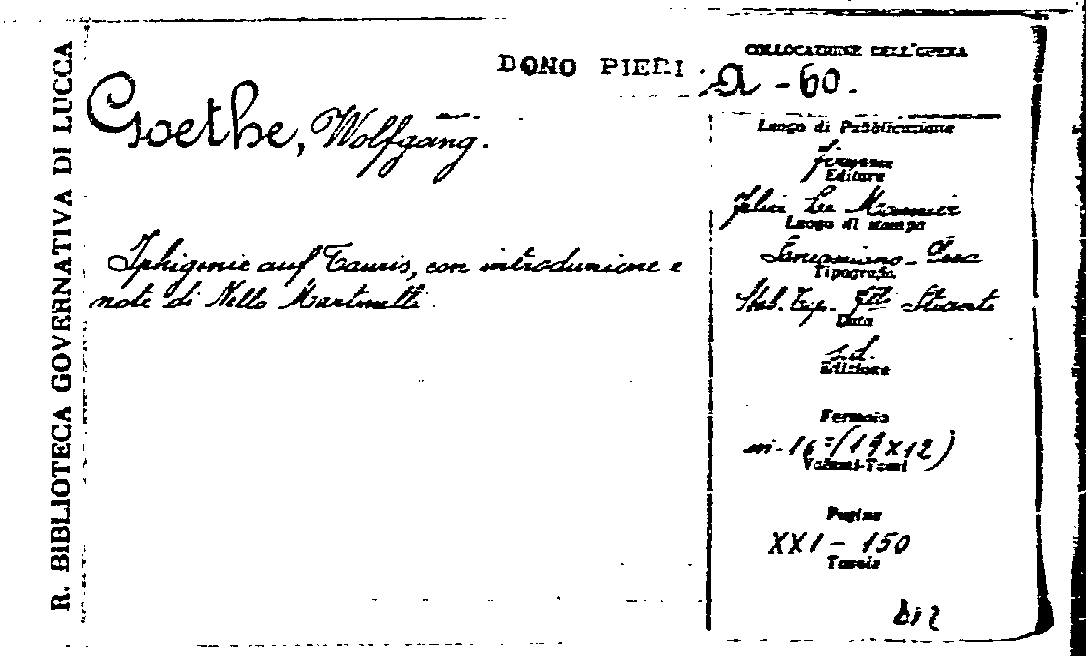 R. BIBLIOTECA GOVERNATIVA DI LUCCA
DONO PIERI
COLLOCAZIONE DELL'OPERA
A - 60.
Goethe, Wolfgang.
Iphigenie auf Tauris, con introduzione e
note di Nello Martinelli.
Luogo di Pubblicazione
Firenze
Editore
Felice Le Monnier
Luogo di stampa
Sancasciano - Pesa
Tipografia
Stab. Tip. F.lli Stianti
Data
s.d.
Edizione
Formato
in-16° (19x12)
Volumi-Tomi
Pagine
XXI - 150
Tavole